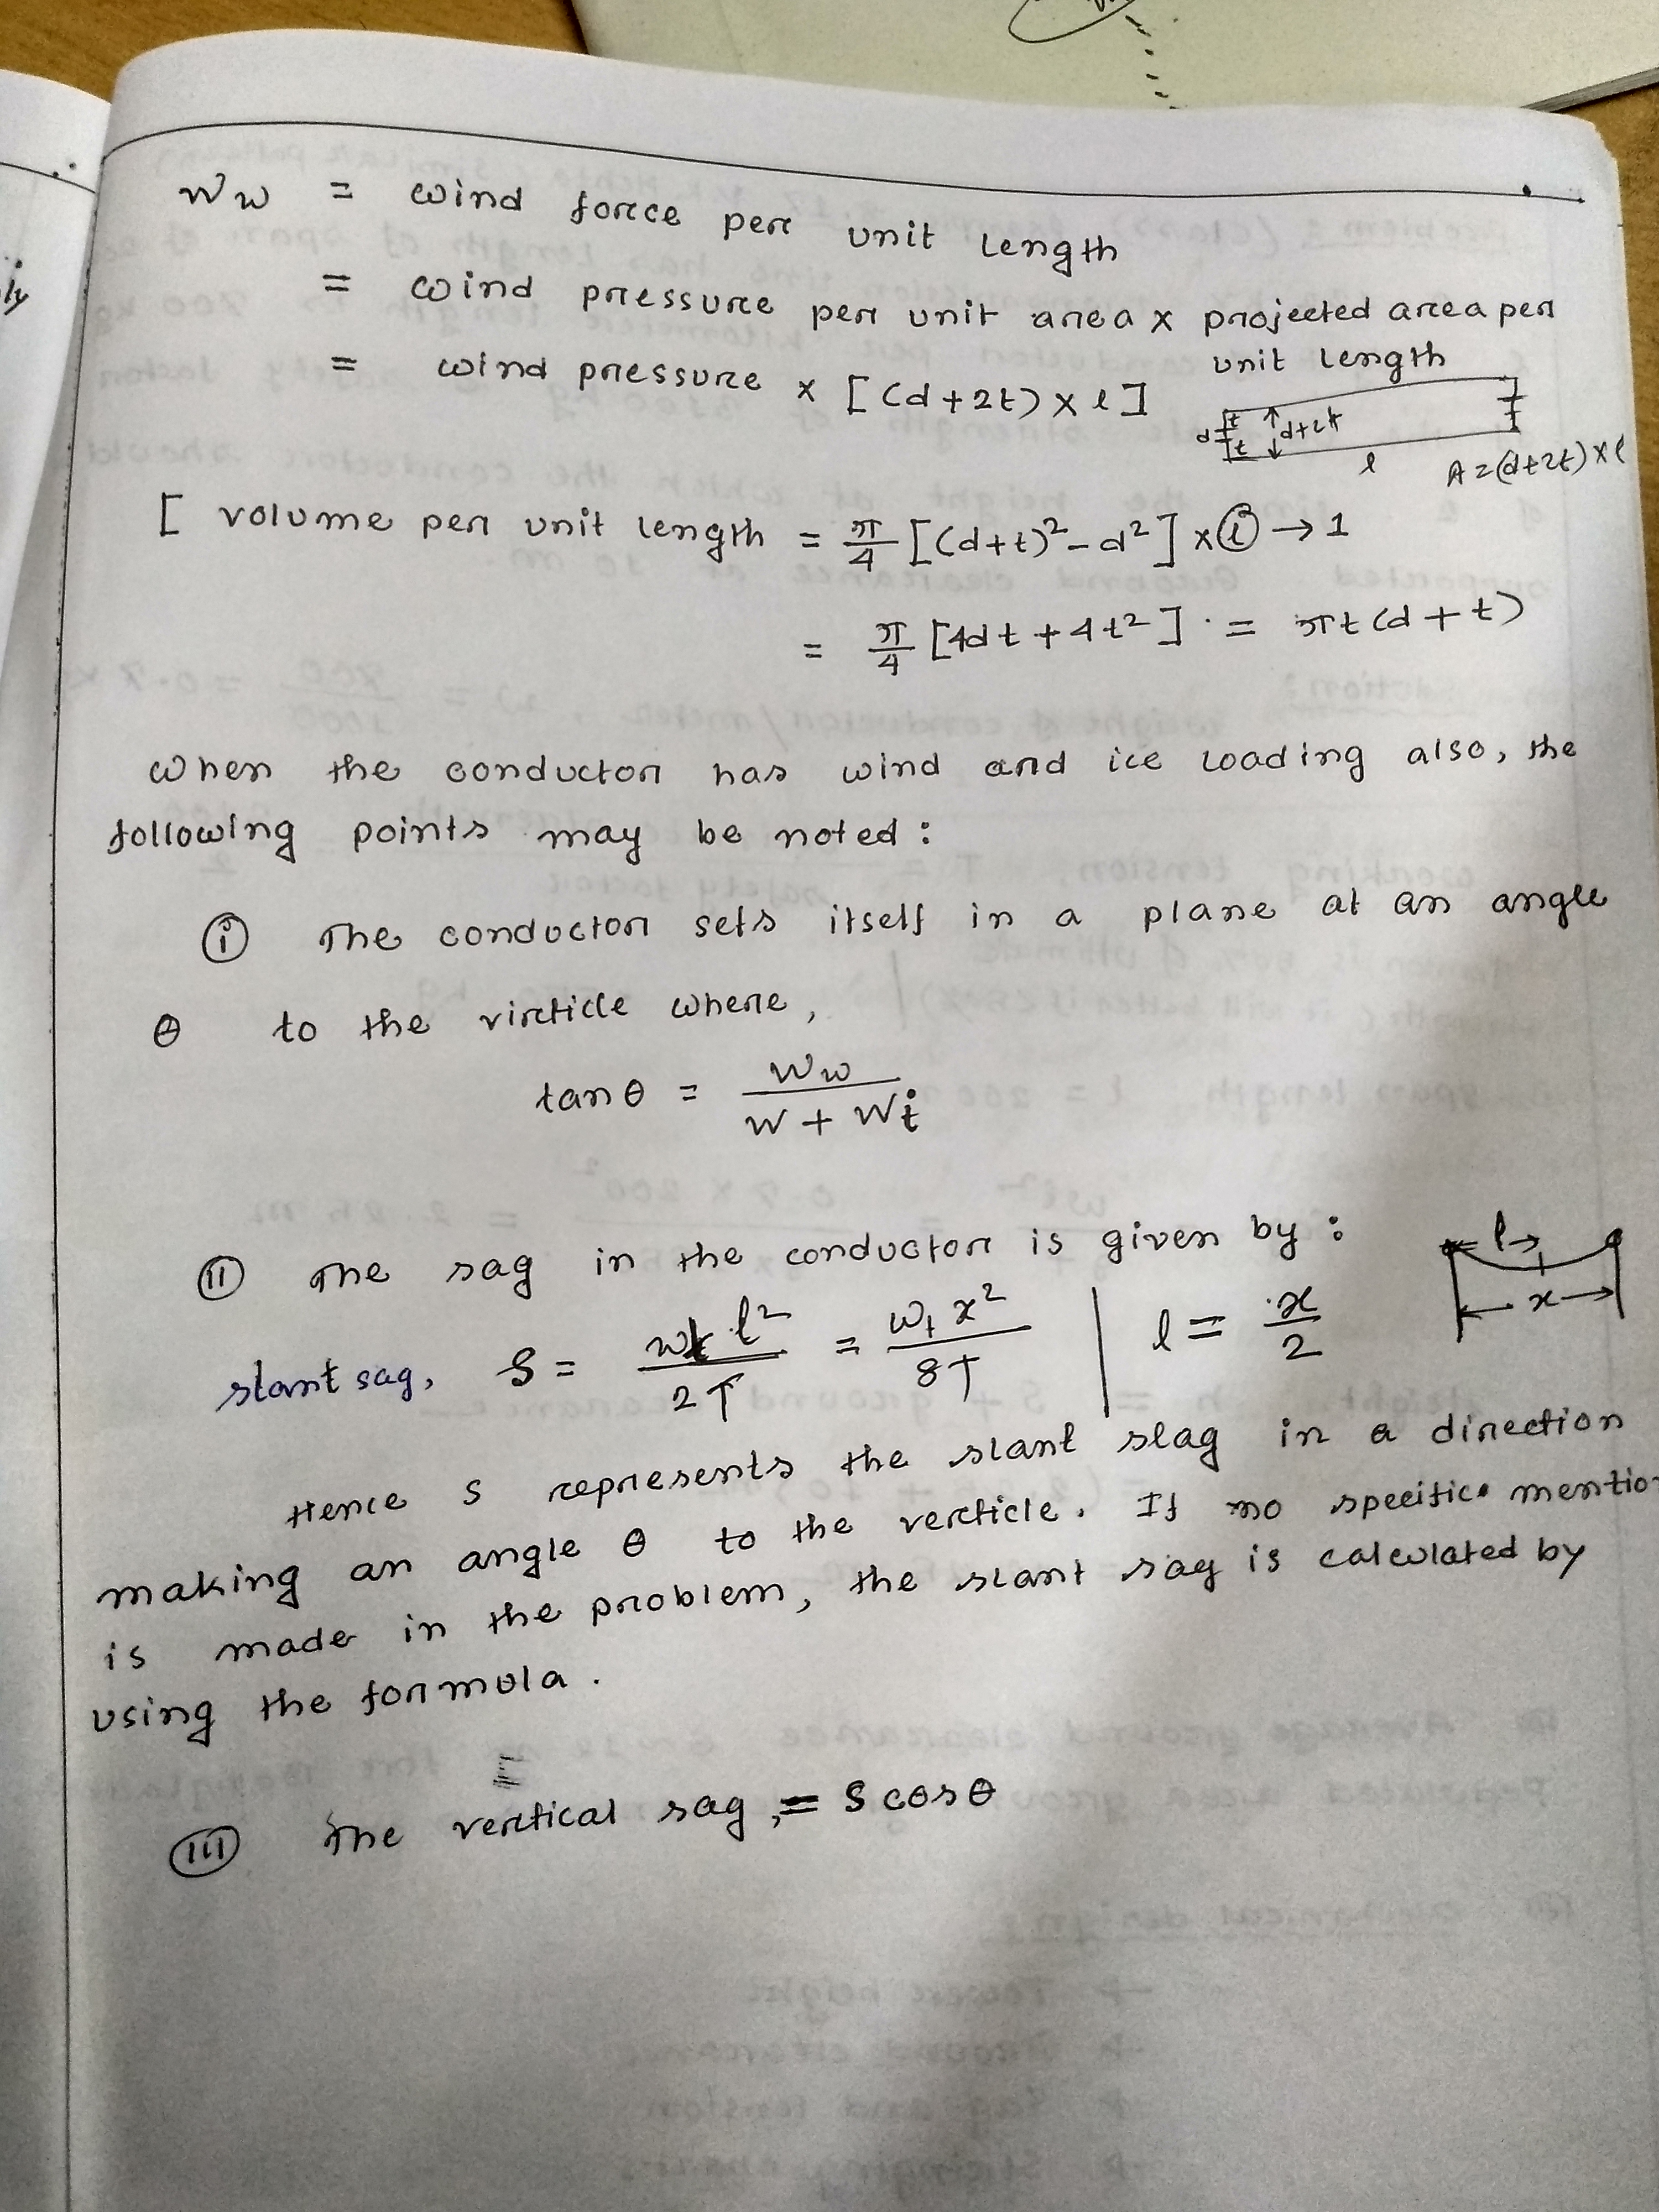 Ww = wind force per unit length
= wind pressure per unit area x projected area per
unit length
= wind pressure x [(d+2t) x l]
d t t d+2t l A=(d+2t)xl
[ volume per unit length = π/4 [(d+t)²-d²] x l → 1
= π/4 [4dt+4t²] = πt(d+t)
when the conductor has wind and ice loading also, the
following points may be noted:
(i) The conductor sets itself in a plane at an angle
θ to the virticle where,
tanθ = Ww / (W + Wi)
(ii) The sag in the conductor is given by:
l x
slant sag, S = wt l² / 2T = wt x² / 8T | l = x/2
Hence S represents the slant slag in a direction
making an angle θ to the verticle. If no specific mention
is made in the problem, the slant sag is calculated by
using the formula.
(iii) The vertical sag, = S cosθ